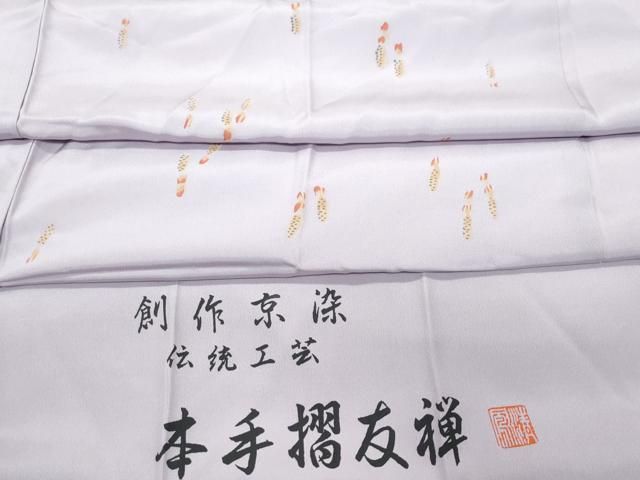 創作京染
伝統工芸
本手摺友禅